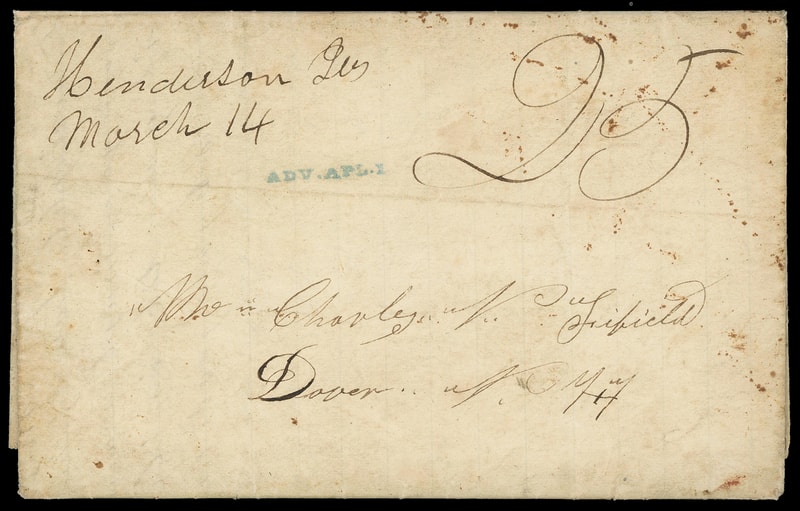 Henderson Tex
March 14
25
ADV. APL. 1
Mr Charles N. Fifield
Dover N. H